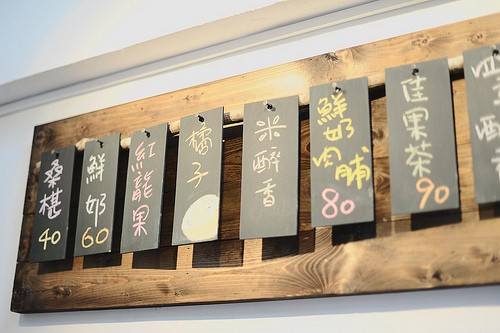 桑椹
40
鮮奶
60
紅龍果
橘子
米酵香
鮮奶肉脯
80
佳果茶
90